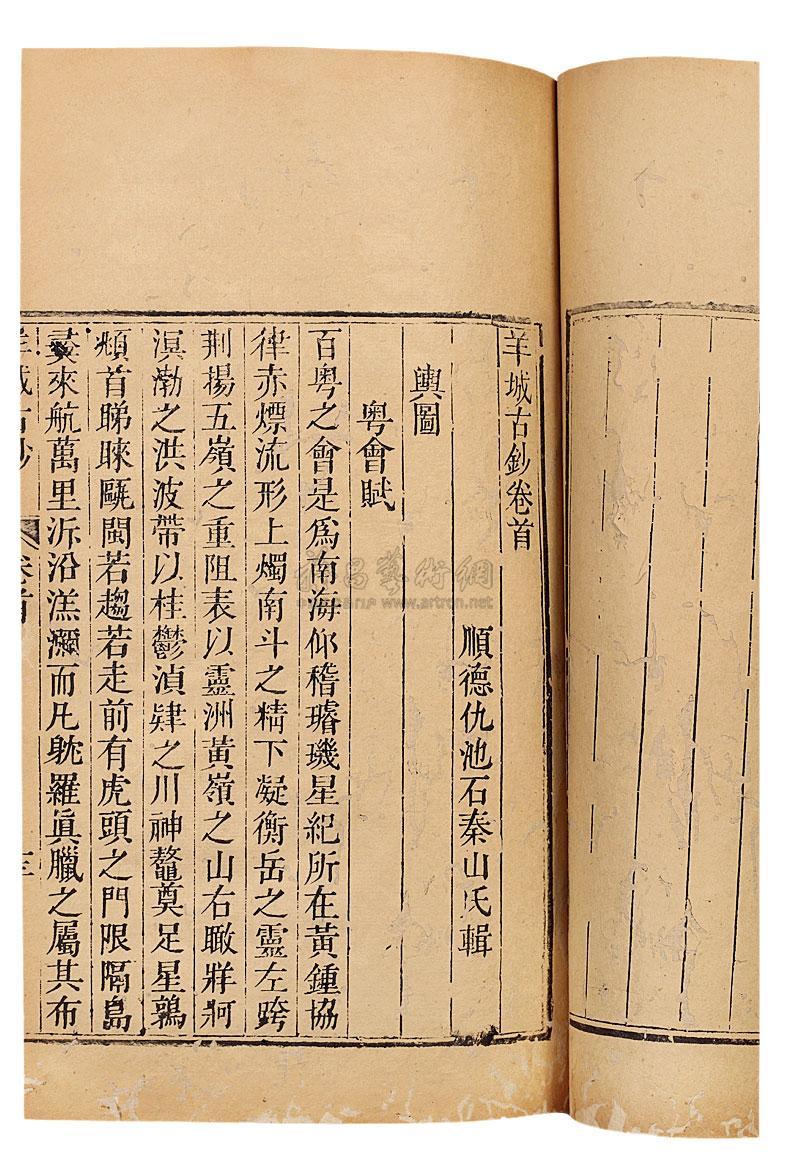 羊城古鈔卷首
順德仇池石秦山氏輯
輿圖
粵會賦
百粵之會是爲南海仰稽璿璣星紀所在黃鍾協
律赤熛流形上燭南斗之精下凝衡岳之靈左跨
荆揚五嶺之重阻表以靈洲黃嶺之山右瞰牂牁
溟渤之洪波帶以桂鬱湞肄之川神鼇奠足星鶉
頫首睇睞甌閩若趨若走前有虎頭之門限隔島
來航萬里泝沿溔瀰而凡躭羅眞臘之屬其布
羊城古鈔 卷首
www.artron.net